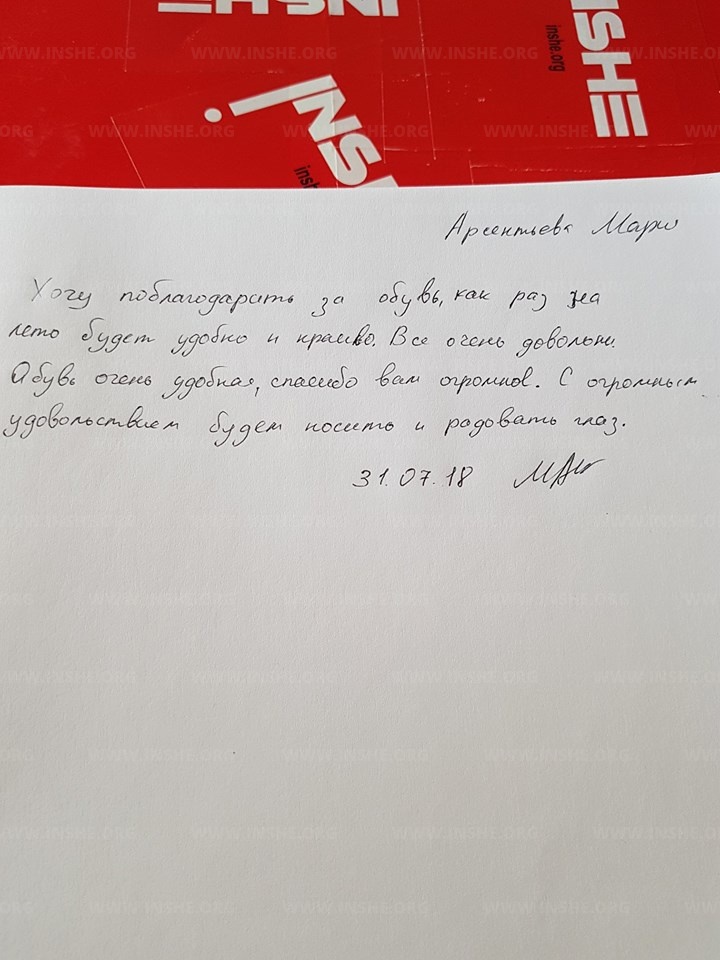 INSHE
INSHE
inshe.org
INSHE
!
Арсентьева Мария
Хочу поблагодарить за обувь, как раз на
лето будет удобно и красиво. Все очень довольны.
Обувь очень удобная, спасибо вам огромное. С огромным
удовольствием будем носить и радовать глаз.
31.07.18
WWW.INSHE.ORG